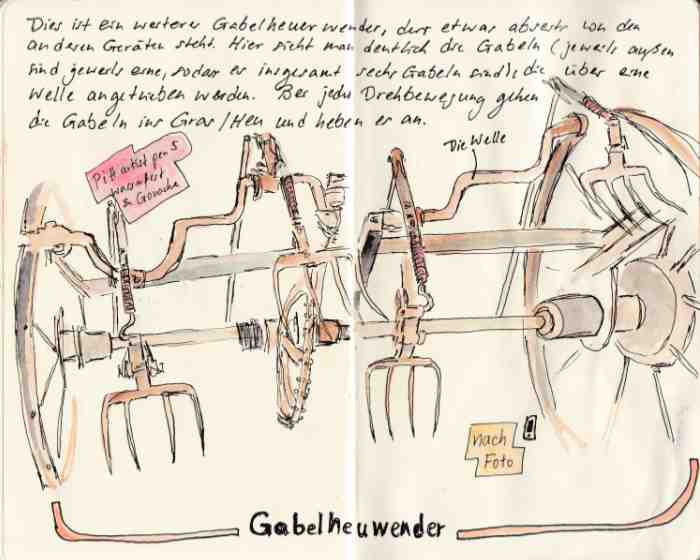 Dies ist ein weiterer Gabelheuerwender, der etwas abseits von den
anderen Geräten steht. Hier sieht man deutlich die Gabeln (jeweils außen
sind jeweils eine, sodass es insgesamt sechs Gabeln sind), die über eine
Welle angetrieben werden. Bei jeder Drehbewegung gehen
die Gabeln ins Gras/Heu und heben es an.
Die Welle
Pitt artist pen S
wasserfest
& Gouache
nach
Foto
Gabelheuwender